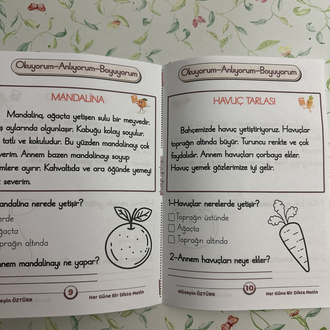 Okuyorum-Anlıyorum-Boyuyorum
MANDALİNA
Mandalina, ağaçta yetişen sulu bir meyvedir.
ş aylarında olgunlaşır. Kabuğu kolay soyulur.
tatlı ve kokuludur. Bu yüzden mandalinayı çok
severim. Annem bazen mandalinayı soyup
imlere ayırır. Kahvaltıda ve ara öğünde yemeyi
severim.
andalina nerede yetişir?
erde
ğaçta
oprağın altında
nnem mandalinayı ne yapar?
9
Her Güne Bir Dikte Metin
Okuyorum-Anlıyorum-Boyuyorum
HAVUÇ TARLASI
Bahçemizde havuç yetiştiriyoruz. Havuçlar
toprağın altında büyür. Turuncu renkte ve çok
faydalıdır. Annem havuçları çorbaya ekler.
Havuç yemek gözlerimize iyi gelir.
1-Havuçlar nerelerde yetişir?
Toprağın üstünde
Ağaçta
Toprağın altında
2-Annem havuçları neye ekler?
Hüseyin ÖZTÜRK
10
Her Güne Bir Dikte Metin